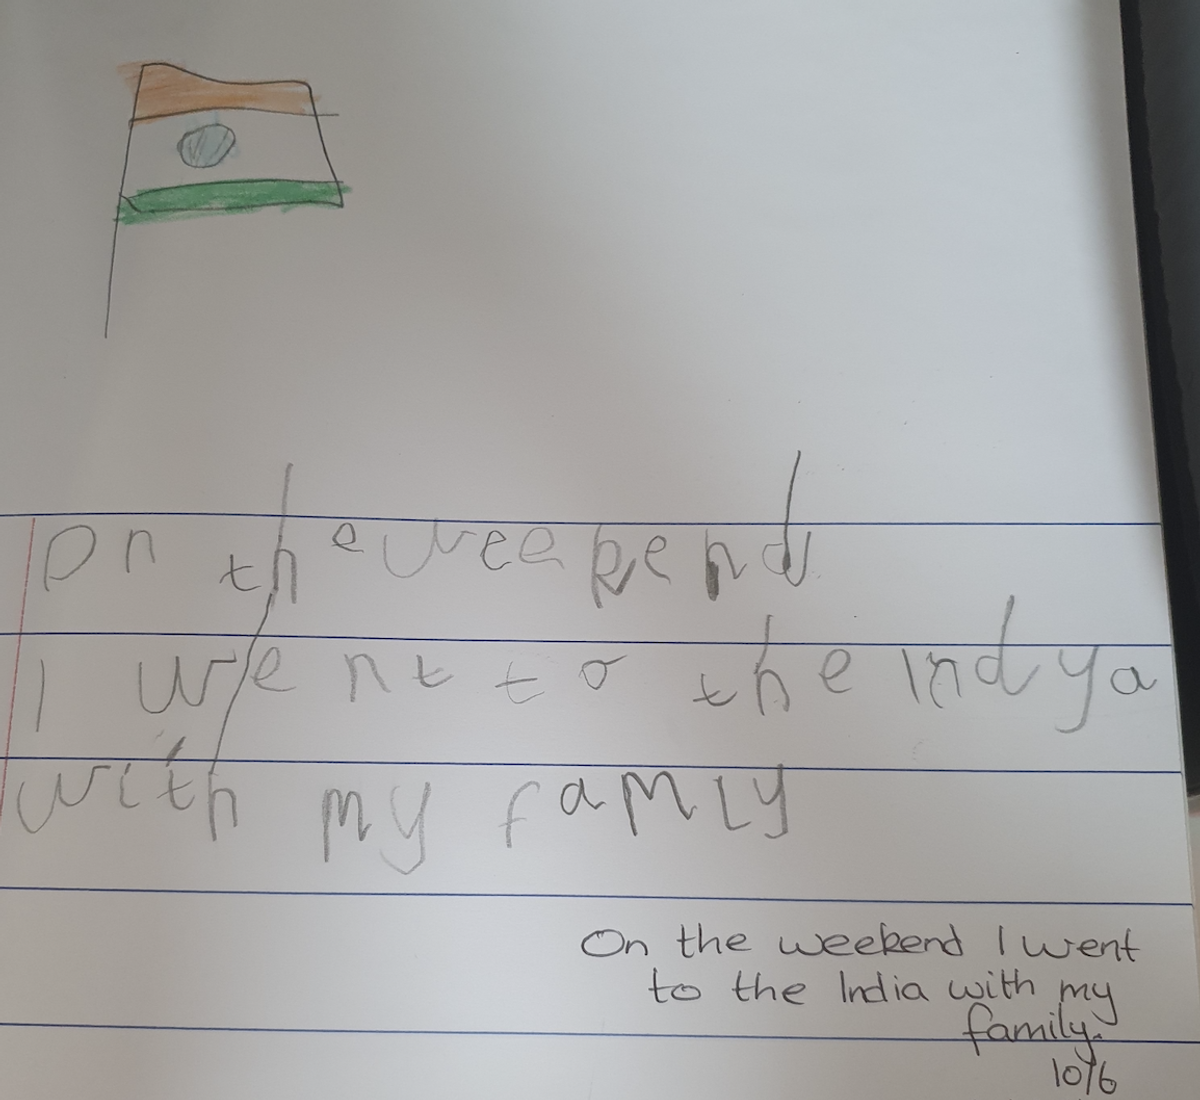 On the weekend
I went to the Indya
with my famly
On the weekend I went
to the India with my
family.
10/6